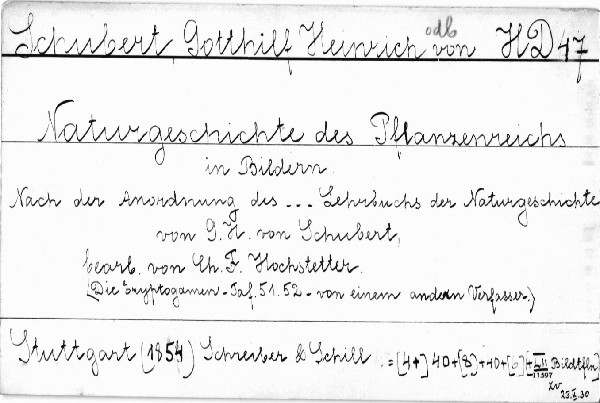 Schubert, Gotthilf Heinrich von odb HD 47
Naturgeschichte des Pflanzenreichs
in Bildern.
Nach der Anordnung des ... Lehrbuchs der Naturgeschichte
von G. H. von Schubert,
bearb. von Ch. F. Hochstetter.
(Die Cryptogamen - Taf. 51. 52. - von einem andern Verfasser.)
Stuttgart (1854) Schreiber & Schill. = [4+] 40+[8]+40+[6] Bildtfln]
11597
25.X.30